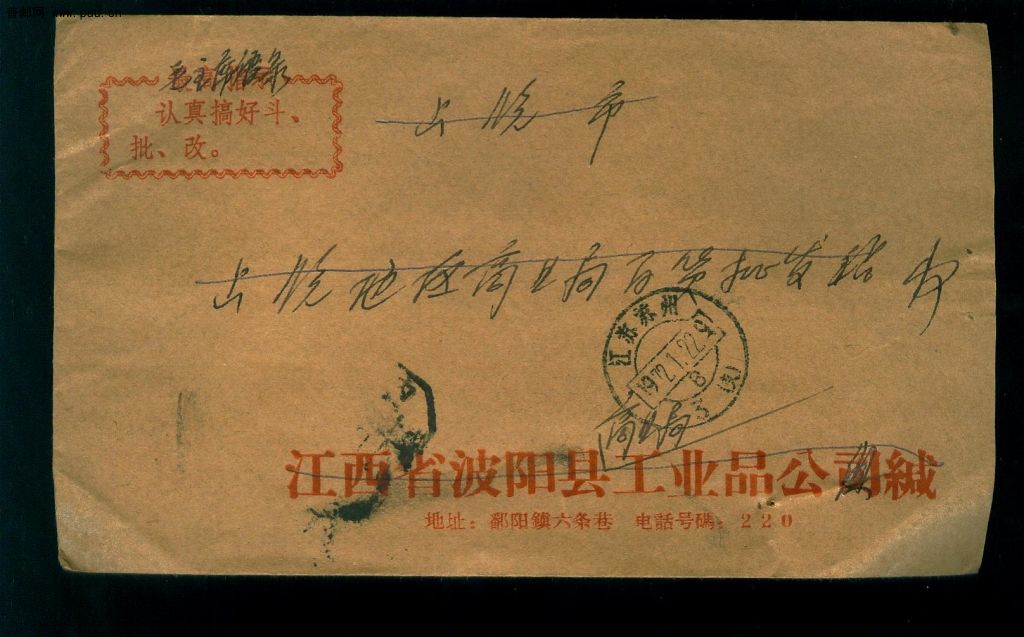 毛主席语录
认真搞好斗、
批、改。
市
地区商业局百货批发站
江苏苏州
1972.1.22.
8
商业局
江西省波阳县工业品公司缄
地址：鄱阳镇六条巷 电話号碼：220